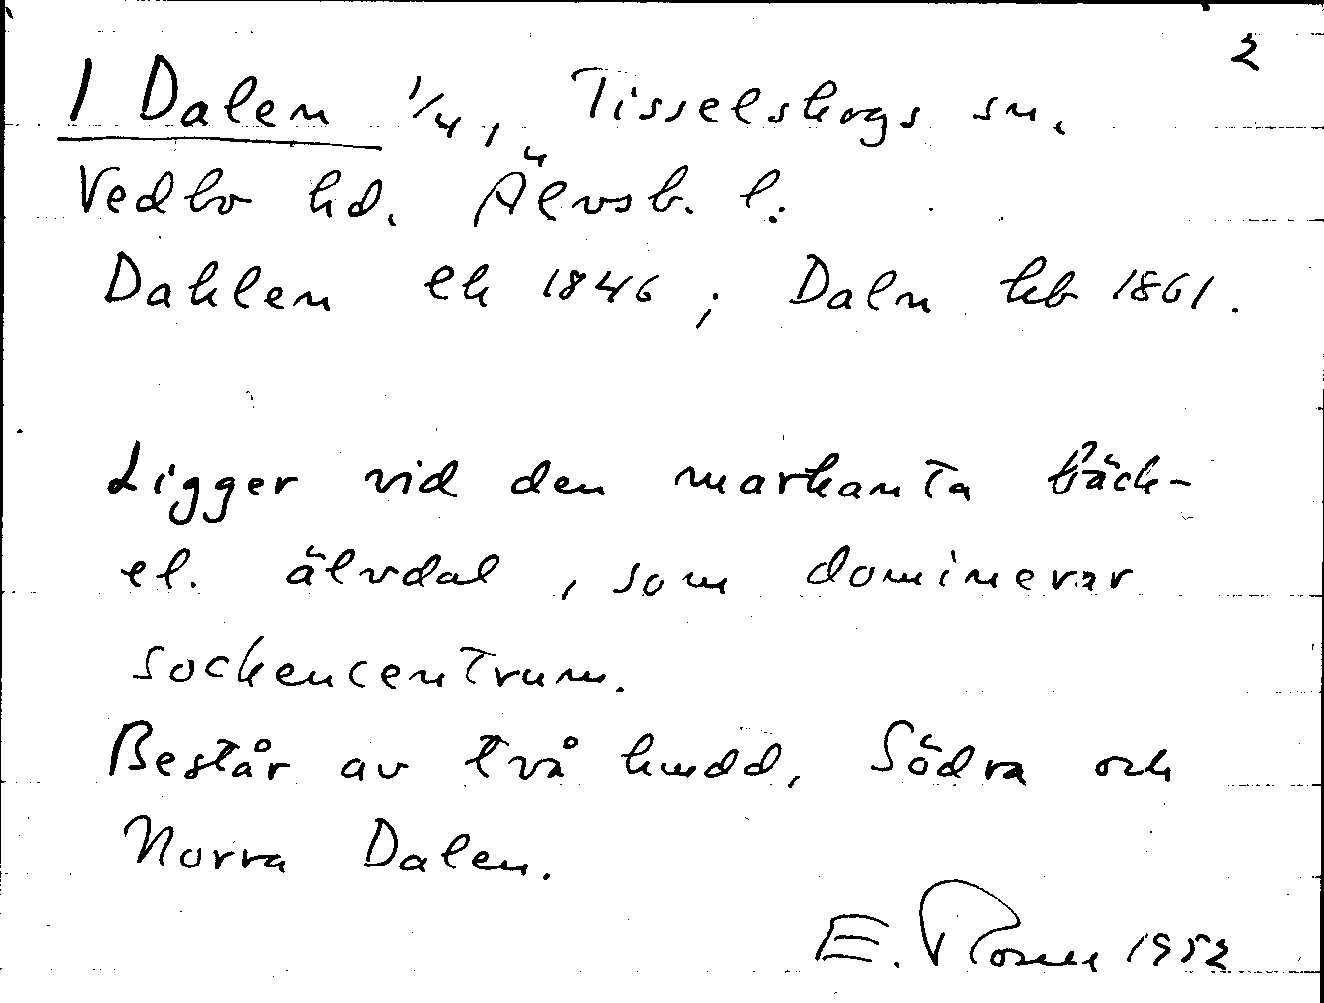 2
1 Dalen 1/4, Tisselskogs sn.
Vedbo hd. Älvsb. l.
Dahlen ek 1846; Daln kb 1861.
Ligger vid den markanta bäck-
el. älvdal, som dominerar
sockencentrum.
Består av två hmdd, Södra och
Norra Dalen.
E. Rosell 1952